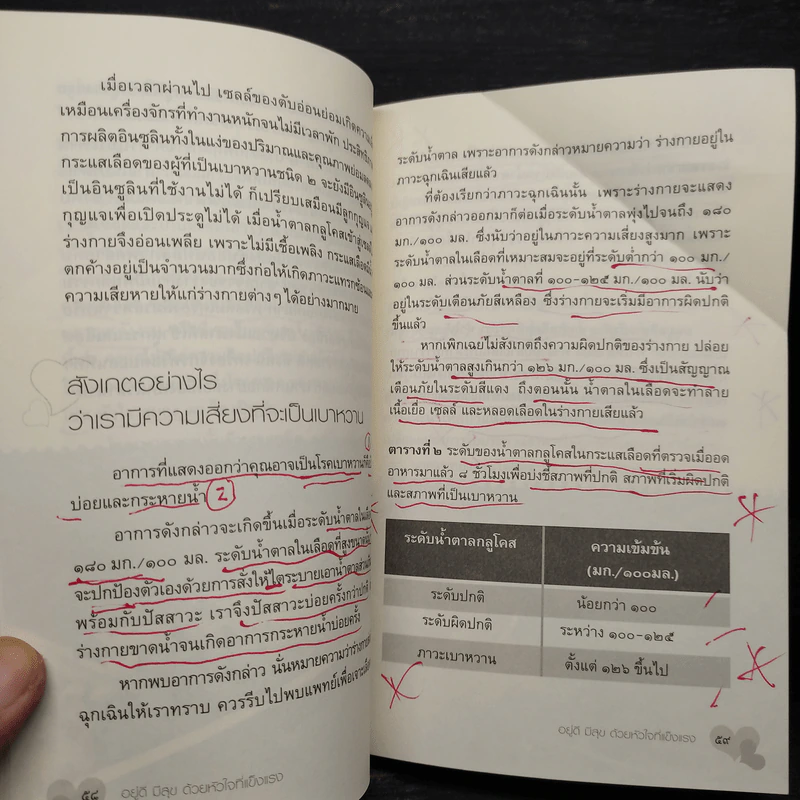 เมื่อเวลาผ่านไป เซลล์ของตับอ่อนย่อมเกิดความ
เหมือนเครื่องจักรที่ทำงานหนักจนไม่มีเวลาพัก
การผลิตอินซูลินทั้งในแง่ของปริมาณและคุณภาพย่อม
กระแสเลือดของผู้ที่เป็นเบาหวานชนิด ๒ จะยังมีอินซูลิน
เป็นอินซูลินที่ใช้งานไม่ได้ ก็เปรียบเสมือนมีลูกกุญแจ
กุญแจเพื่อเปิดประตูไม่ได้ เมื่อน้ำตาลกลูโคสเข้าสู่
ร่างกายจึงอ่อนเพลีย เพราะไม่มีเชื้อเพลิง กระแสเลือด
ตกค้างอยู่เป็นจำนวนมากซึ่งก่อให้เกิดภาวะแทรกซ้อน
ความเสียหายให้แก่ร่างกายต่างๆ ได้อย่างมากมาย
สังเกตอย่างไร
ว่าเรามีความเสี่ยงที่จะเป็นเบาหวาน
อาการที่แสดงออกว่าคุณอาจเป็นโรคเบาหวาน
บ่อยและกระหายน้ำ 2
อาการดังกล่าวจะเกิดขึ้นเมื่อระดับน้ำตาลใน
๑๘๐ มก./๑๐๐ มล. ระดับน้ำตาลในเลือดที่สูงขนาด
จะปกป้องตัวเองด้วยการสั่งให้ไตระบายเอาน้ำตาล
พร้อมกับปัสสาวะ เราจึงปัสสาวะบ่อยครั้งกว่าปกติ
ร่างกายขาดน้ำจนเกิดอาการกระหายน้ำบ่อยครั้ง
หากพบอาการดังกล่าว นั่นหมายความว่าร่างกาย
ฉุกเฉินให้เราทราบ ควรรีบไปพบแพทย์เพื่อเจาะ
๕๘ อยู่ดี มีสุข ด้วยหัวใจที่แข็งแรง
ระดับน้ำตาล เพราะอาการดังกล่าวหมายความว่า ร่างกายอยู่ใน
ภาวะฉุกเฉินเสียแล้ว
ที่ต้องเรียกว่าภาวะฉุกเฉินนั้น เพราะร่างกายจะแสดง
อาการดังกล่าวออกมาก็ต่อเมื่อระดับน้ำตาลพุ่งไปจนถึง ๑๘๐
มก./๑๐๐ มล. ซึ่งนับว่าอยู่ในภาวะความเสี่ยงสูงมาก เพราะ
ระดับน้ำตาลในเลือดที่เหมาะสมจะอยู่ที่ระดับต่ำกว่า ๑๐๐ มก./
๑๐๐ มล. ส่วนระดับน้ำตาลที่ ๑๐๐-๑๒๕ มก./๑๐๐ มล. นับว่า
อยู่ในระดับเตือนภัยสีเหลือง ซึ่งร่างกายจะเริ่มมีอาการผิดปกติ
ขึ้นแล้ว
หากเพิกเฉยไม่สังเกตถึงความผิดปกติของร่างกาย ปล่อย
ให้ระดับน้ำตาลสูงเกินกว่า ๑๒๖ มก./๑๐๐ มล. ซึ่งเป็นสัญญาณ
เตือนภัยในระดับสีแดง ถึงตอนนั้น น้ำตาลในเลือดจะทำลาย
เนื้อเยื่อ เซลล์ และหลอดเลือดในร่างกายเสียแล้ว
ตารางที่ ๒ ระดับของน้ำตาลกลูโคสในกระแสเลือดที่ตรวจเมื่ออด
อาหารมาแล้ว ๘ ชั่วโมงเพื่อบ่งชี้สภาพที่ปกติ สภาพที่เริ่มผิดปกติ
และสภาพที่เป็นเบาหวาน
ระดับน้ำตาลกลูโคส ความเข้มข้น
(มก./๑๐๐มล.)
ระดับปกติ น้อยกว่า ๑๐๐
ระดับผิดปกติ ระหว่าง ๑๐๐-๑๒๕
ภาวะเบาหวาน ตั้งแต่ ๑๒๖ ขึ้นไป
อยู่ดี มีสุข ด้วยหัวใจที่แข็งแรง ๕๙